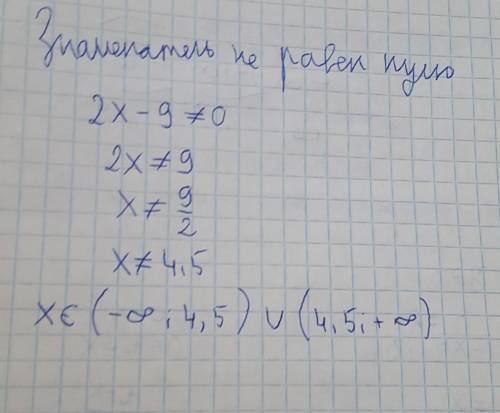 Знаменатель не равен нулю
2x - 9 ≠ 0
2x ≠ 9
x ≠ 9/2
x ≠ 4,5
x ∈ (-∞; 4,5) ∪ (4,5; +∞)